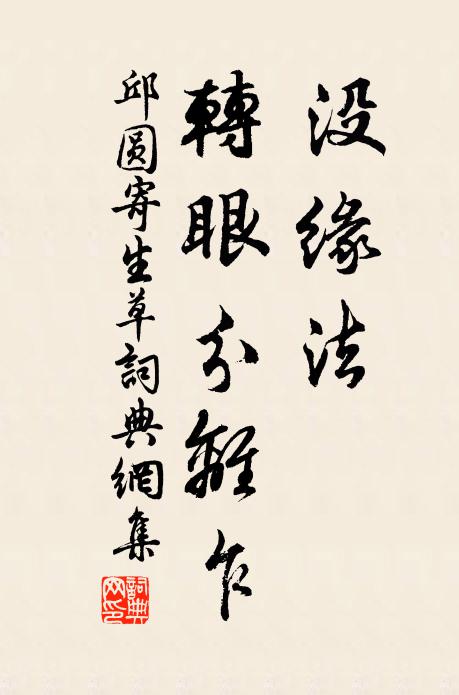 没緣法
轉眼分離乍
邱圓寄生草詞典網集
詞典網印